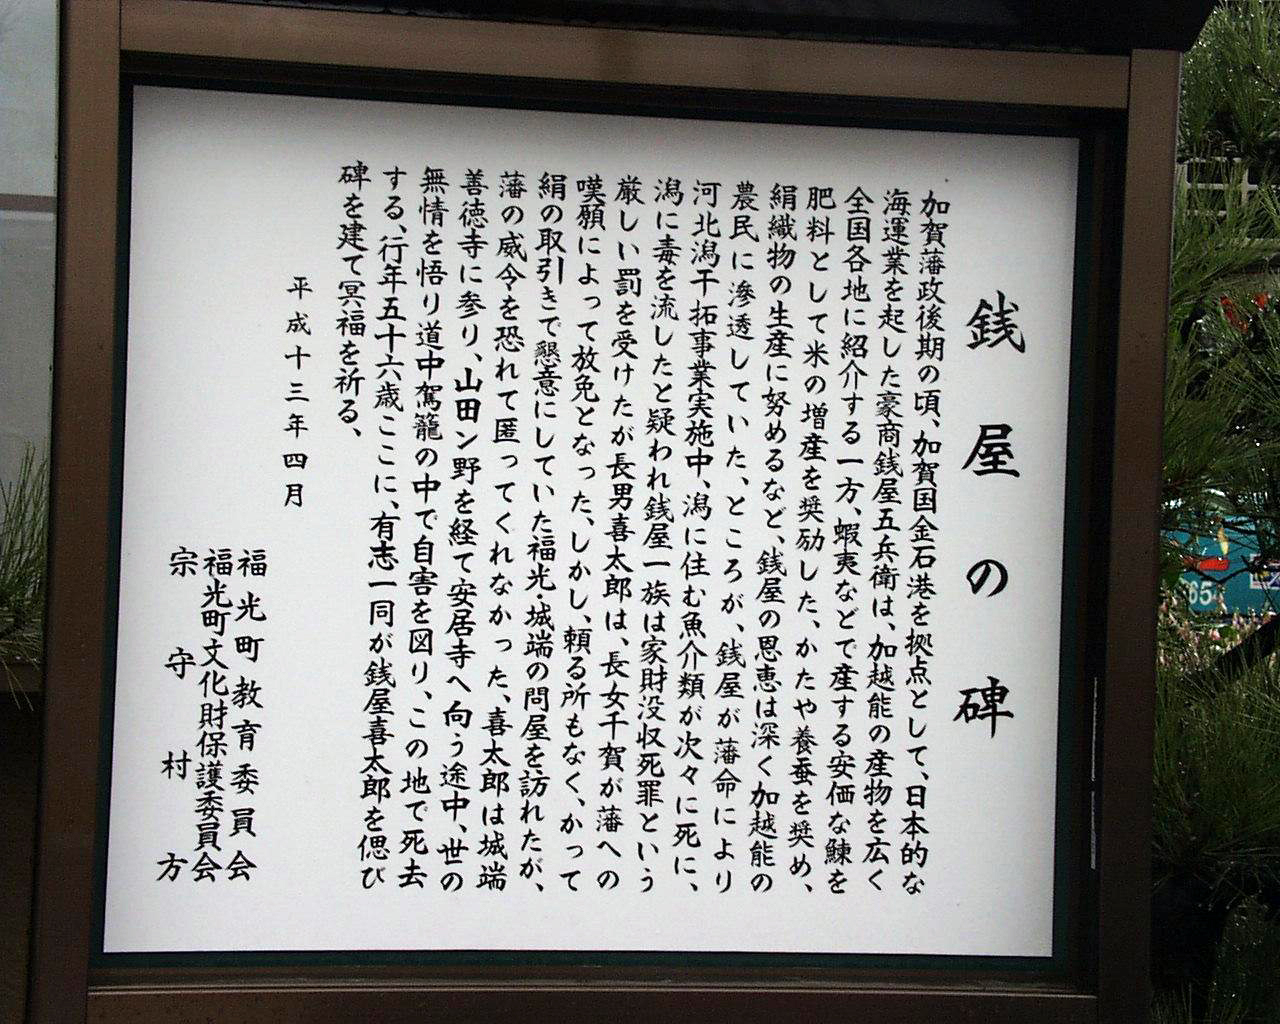 銭屋の碑
加賀藩政後期の頃、加賀国金石港を拠点として、日本的な
海運業を起した豪商銭屋五兵衛は、加越能の産物を広く
全国各地に紹介する一方、蝦夷などで産する安価な鰊を
肥料として米の増産を奨励した、かたや養蚕を奨め、
絹織物の生産に努めるなど、銭屋の恩恵は深く加越能の
農民に滲透していた、ところが、銭屋が藩命により
河北潟干拓事業実施中、潟に住む魚介類が次々に死に、
潟に毒を流したと疑われ銭屋一族は家財没収死罪という
厳しい罰を受けたが長男喜太郎は、長女千賀が藩への
嘆願によって放免となった、しかし、頼る所もなく、かって
絹の取引きで懇意にしていた福光・城端の問屋を訪れたが、
藩の威令を恐れて匿ってくれなかった、喜太郎は城端
善徳寺に参り、山田ン野を経て安居寺へ向う途中、世の
無情を悟り道中駕籠の中で自害を図り、この地で死去
する、行年五十六歳ここに、有志一同が銭屋喜太郎を偲び
碑を建て冥福を祈る、
平成十三年四月
福光町教育委員会
福光町文化財保護委員会
宗守村方
65